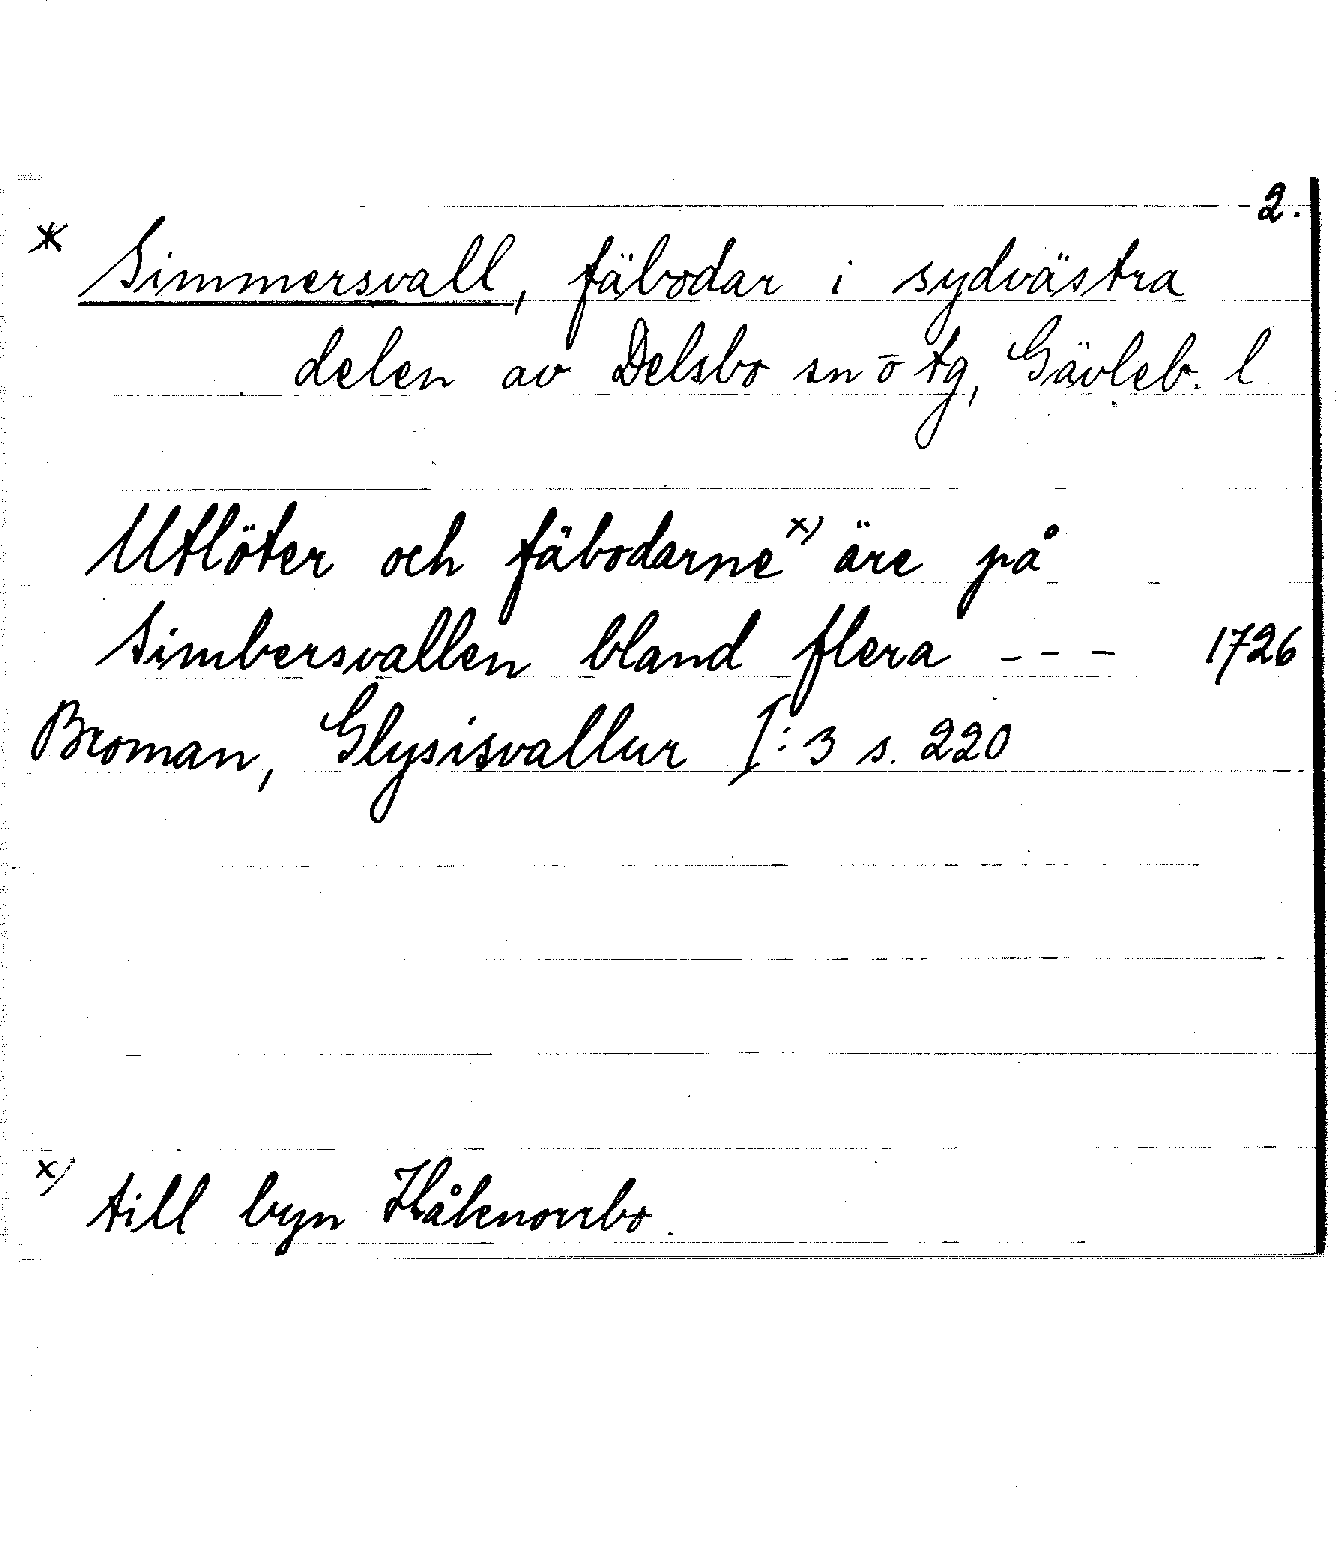 2.
* Simmersvall, fäbodar i sydvästra
delen av Delsbo sn o tg, Gävleb. l
Utlöter och fäbodarne x) äre på
Simbersvallen bland flera - - - 1726
Broman, Glysisvallur I:3 s. 220
x) till byn Håkenorrbo.